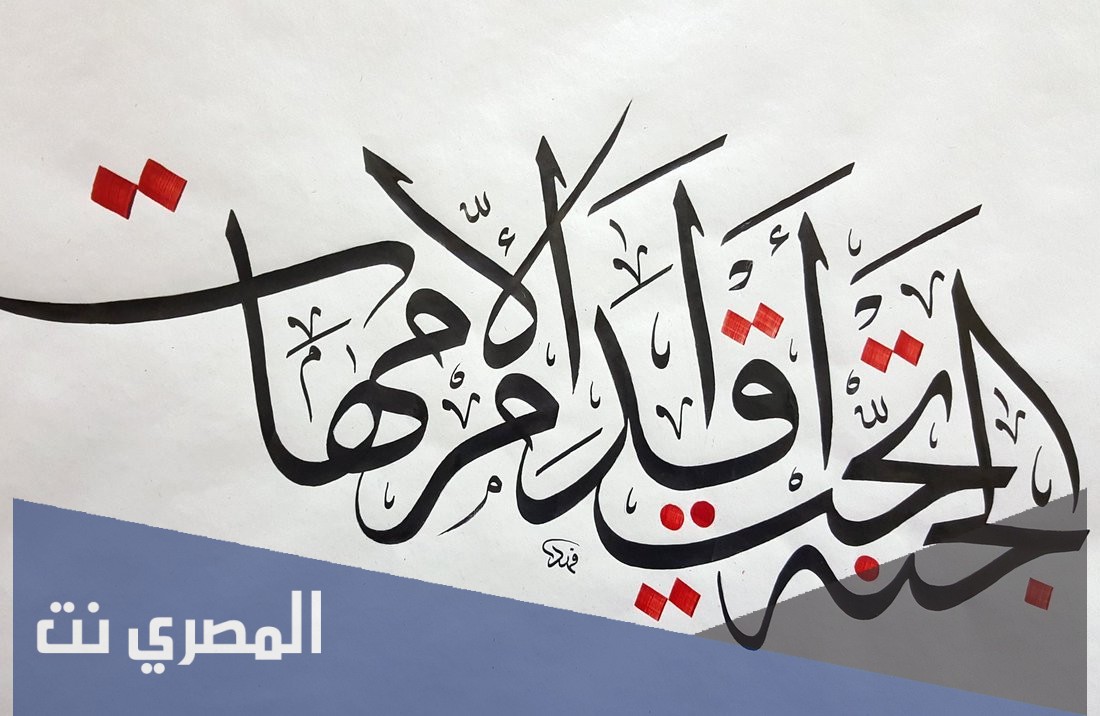 الجنة تحت أقدام الأمهات
فهد
المصري نت